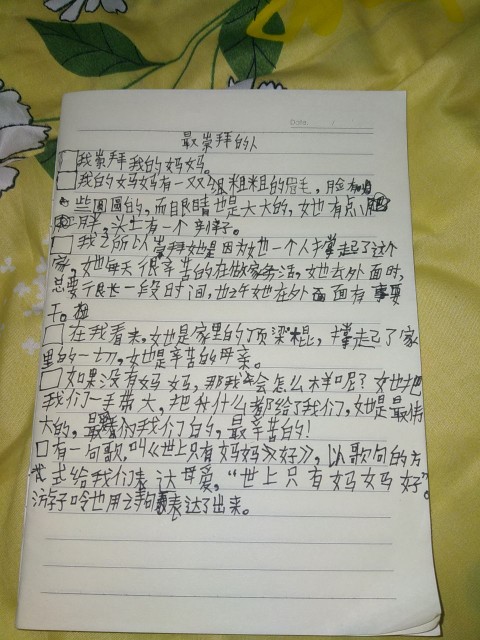 Date: / /
最崇拜的人
我崇拜我的妈妈。
我的妈妈有一双很粗粗的眉毛，脸有
些圆圆的，而眼睛也是大大的，她也有点
胖，头上有一个辫子。
我之所以崇拜她是因为她一个人撑起了这个
家，她每天很辛苦的在做家务活，她去外面时，
总要很长一段时间，也许她在外面有事要
干。
在我看来，她是家里的顶梁棍，撑起了家
里的一切，她也是辛苦的母亲。
如果没有妈妈，那我会怎么样呢？她把
我们一手带大，把什么都给了我们，她是最伟
大的，最我们的，最辛苦的！
有一句歌，叫《世上只有妈妈》好》，以歌句的方
式给我们表达母爱，“世上只有妈妈好”。
游子吟也用诗句表达了出来。